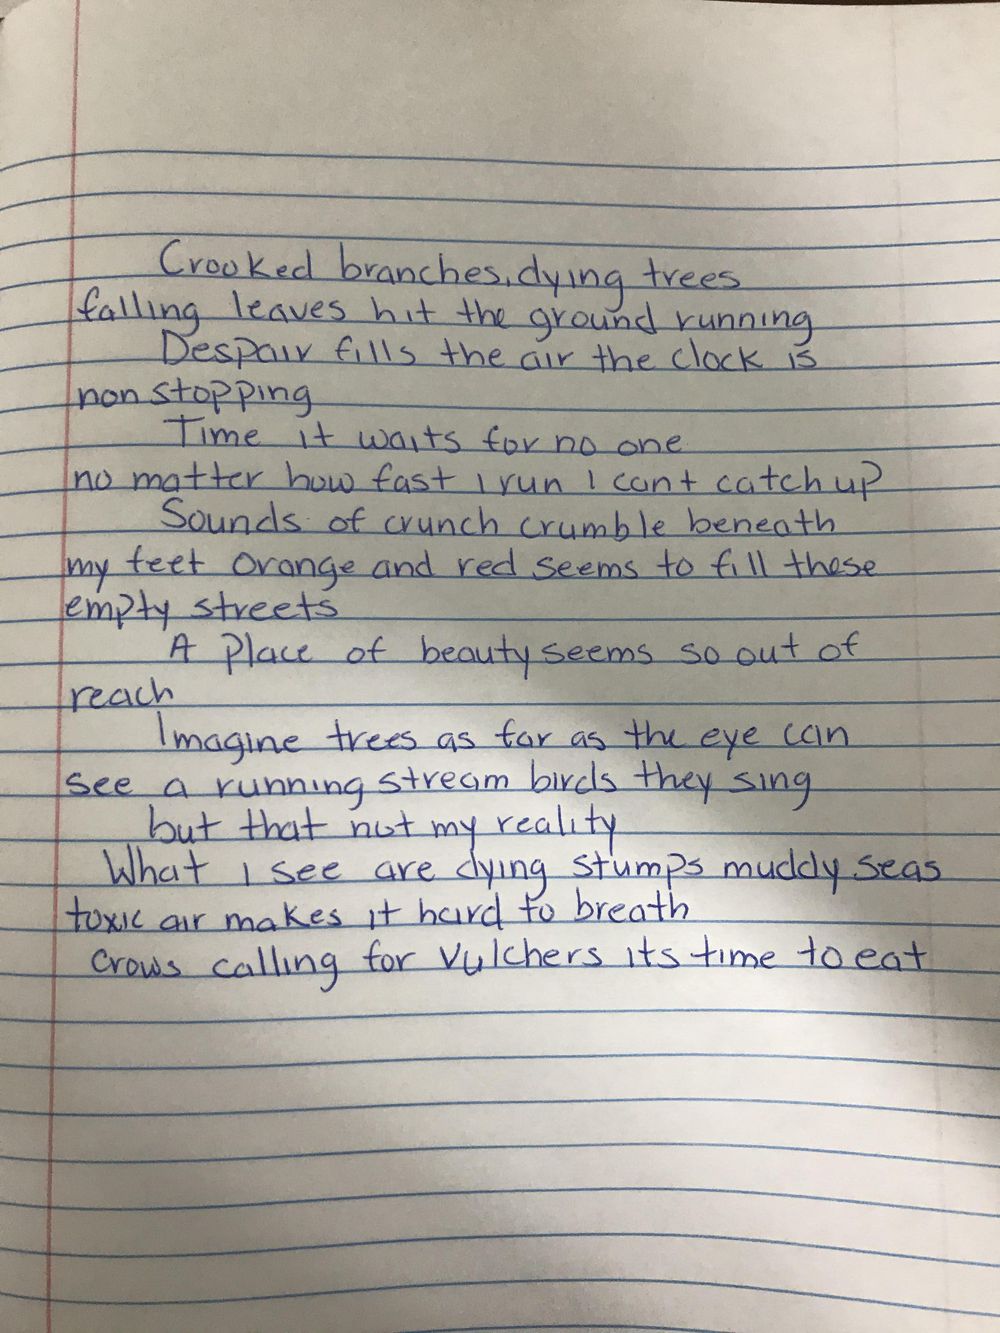 Crooked branches, dying trees
falling leaves hit the ground running
Despair fills the air the clock is
non stopping
Time it waits for no one
no matter how fast I run I cant catch up?
Sounds of crunch crumble beneath
my feet orange and red seems to fill these
empty streets
A Place of beauty seems so out of
reach
Imagine trees as far as the eye can
see a running stream birds they sing
but that not my reality
What I see are dying stumps muddy seas
toxic air makes it hard to breath
Crows calling for Vulchers its time to eat